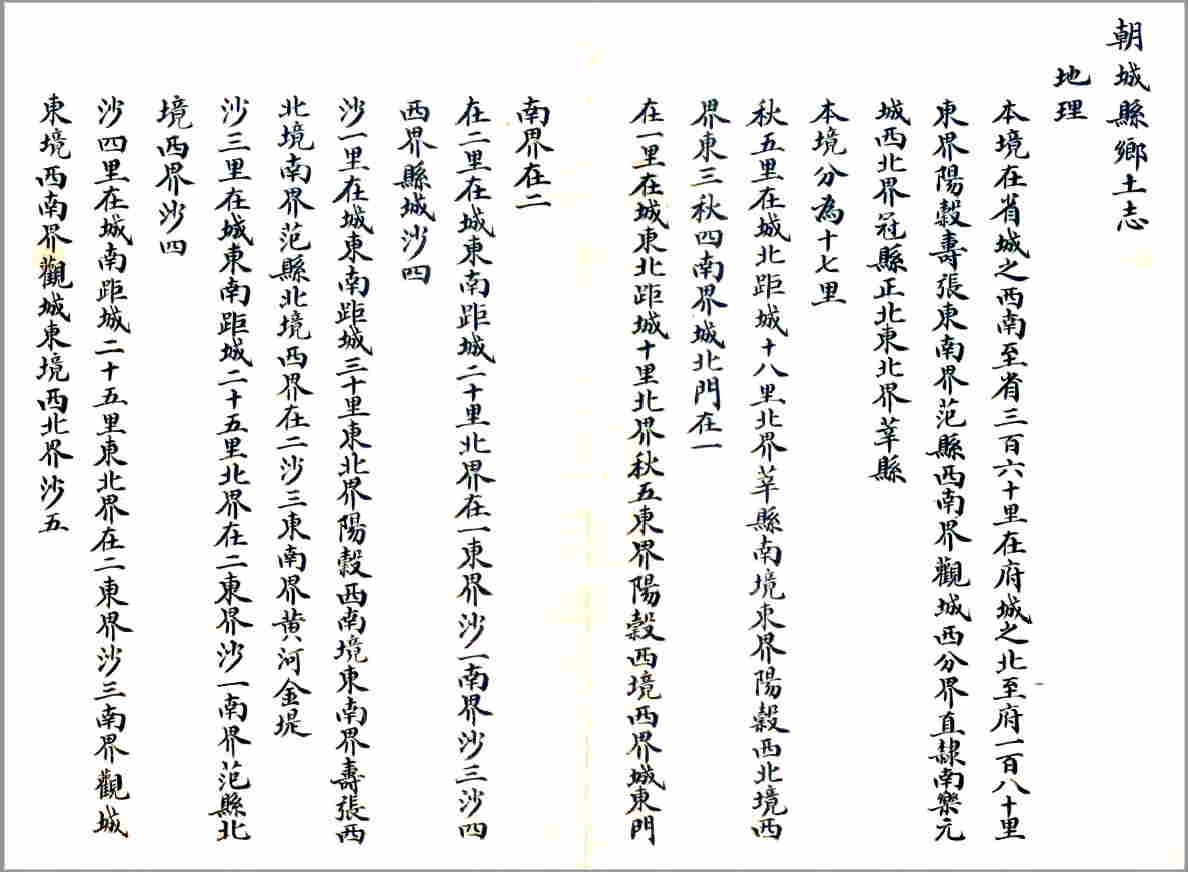 朝城縣鄉土志
地理
本境在省城之西南至省三百六十里在府城之北至府一百八十里
東界陽穀壽張東南界范縣西南界觀城西分界直隸南樂元
城西北界冠縣正北東北界莘縣
本境分為十七里
秋五里在城北距城十八里北界莘縣南境東界陽穀西北境西
界東三秋四南界城北門在一
在一里在城東北距城十里北界秋五東界陽穀西境西界城東門
南界在二
在二里在城東南距城二十里北界在一東界沙一南界沙三沙四
西界縣城沙四
沙一里在城東南距城三十里東北界陽穀西南境東南界壽張西
北境南界范縣北境西界在二沙三東南界黃河金堤
沙三里在城東南距城二十五里北界在二東界沙一南界范縣北
境西界沙四
沙四里在城南距城二十五里東北界在二東界沙三南界觀城
東境西南界觀城東境西北界沙五